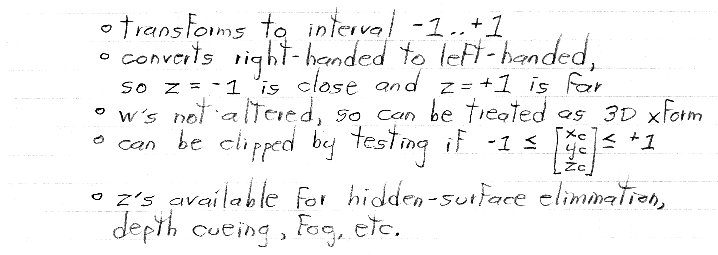 • transforms to interval -1..+1
• converts right-handed to left-handed,
so z = -1 is close and z = +1 is far
• w's not altered, so can be treated as 3D xform
• can be clipped by testing if -1 ≤ [xc yc zc] ≤ +1
• z's available for hidden-surface elimination,
depth cueing, fog, etc.